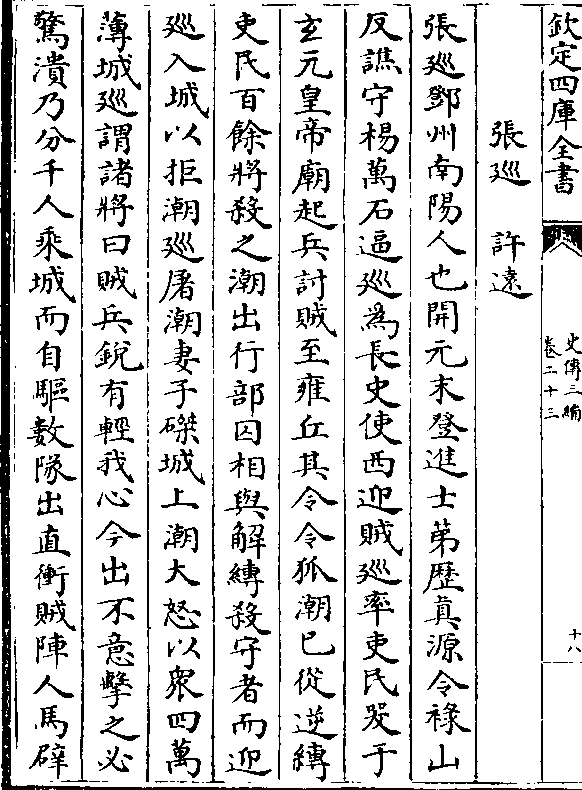 欽定四庫全書
史傳三編
卷二十三
十八
張廵　許遠
張廵鄧州南陽人也開元末登進士第歴真源令禄山
反譙守楊萬石逼廵為長史使西迎賊廵率吏民哭于
玄元皇帝廟起兵討賊至雍丘其令令狐潮已從逆縛
吏民百餘將殺之潮出行部囚相與解縛殺守者而迎
廵入城以拒潮廵屠潮妻子磔城上潮大怒以衆四萬
薄城廵謂諸將曰賊兵銳有輕我心今出不意擊之必
驚潰乃分千人乘城而自驅數隊出直衝賊陣人馬辟